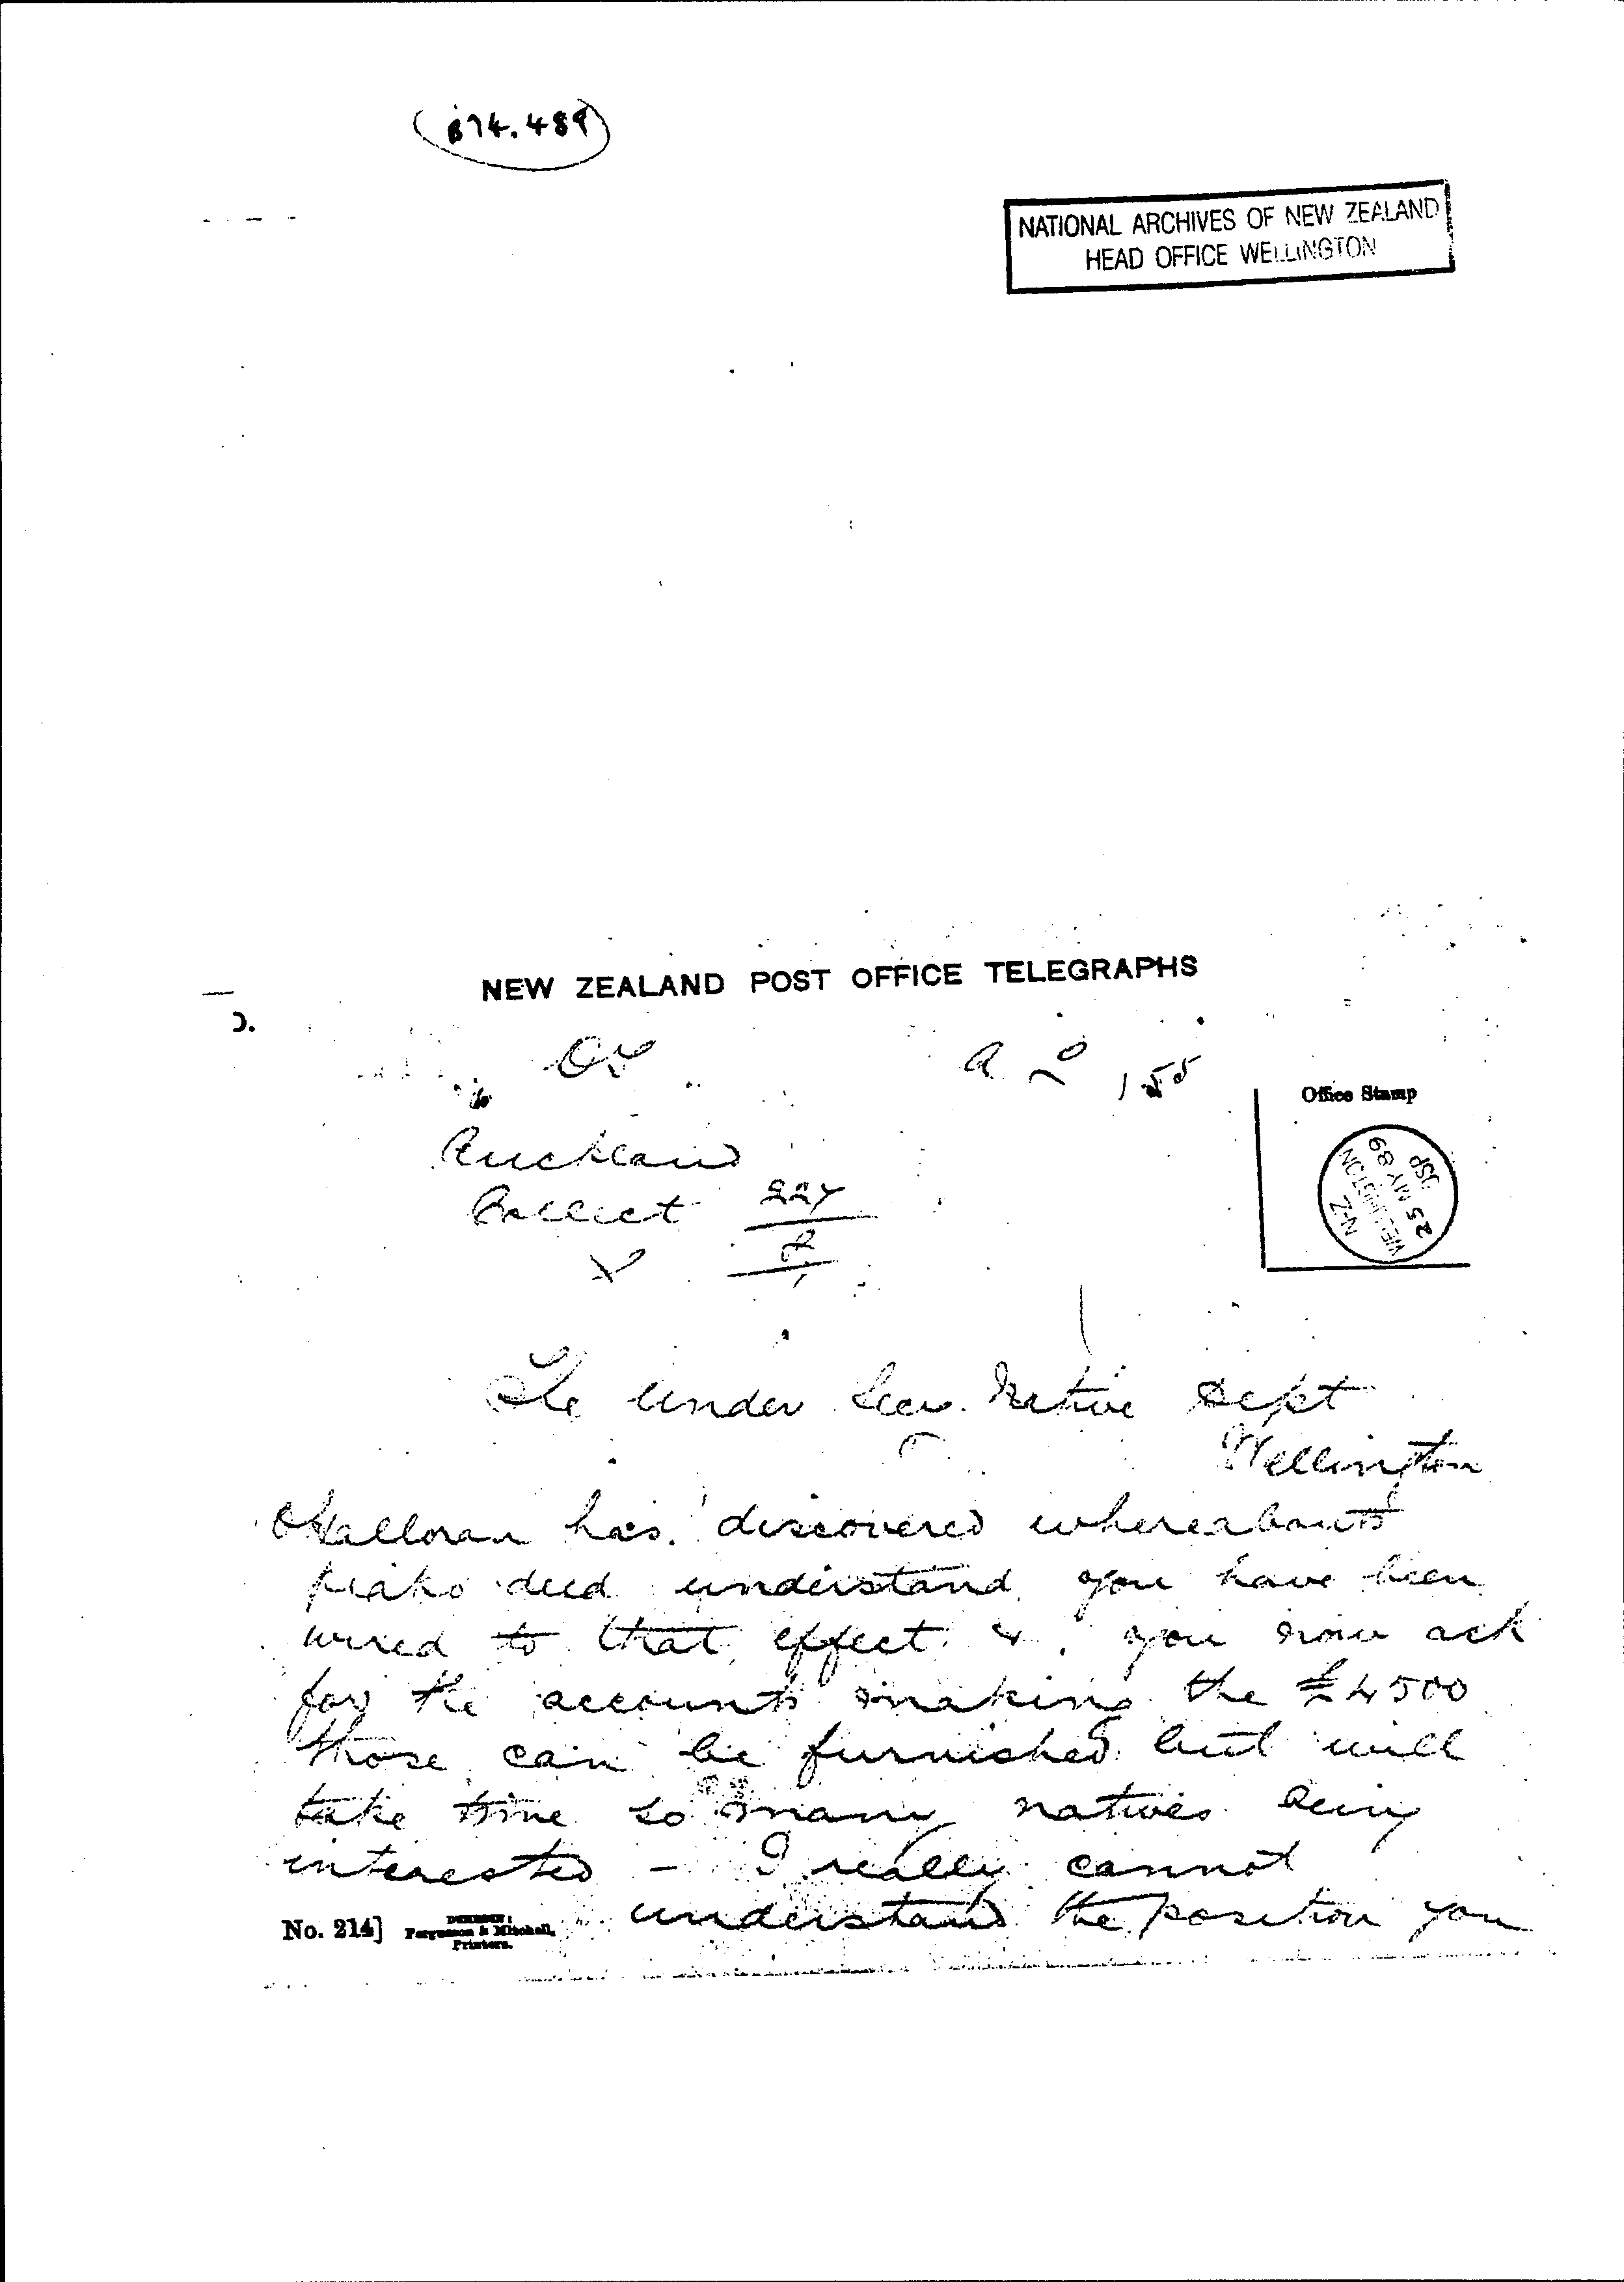 874.489
NATIONAL ARCHIVES OF NEW ZEALAND
HEAD OFFICE WELLINGTON
NEW ZEALAND POST OFFICE TELEGRAPHS
Office Stamp
155
N-Z
WELLINGTON
25 MY 89
Auckland
Collect
The Under Secy. Native Dept
Wellington
OHalloran has discovered whereabouts
piako deed understand you have been
wired to that effect & you now ask
for the accounts making the £4500
those can be furnished but will
take time so many natives being
interested - I really cannot
No. 214]
Fergusson & Mitchell,
Printers.
understand the position you